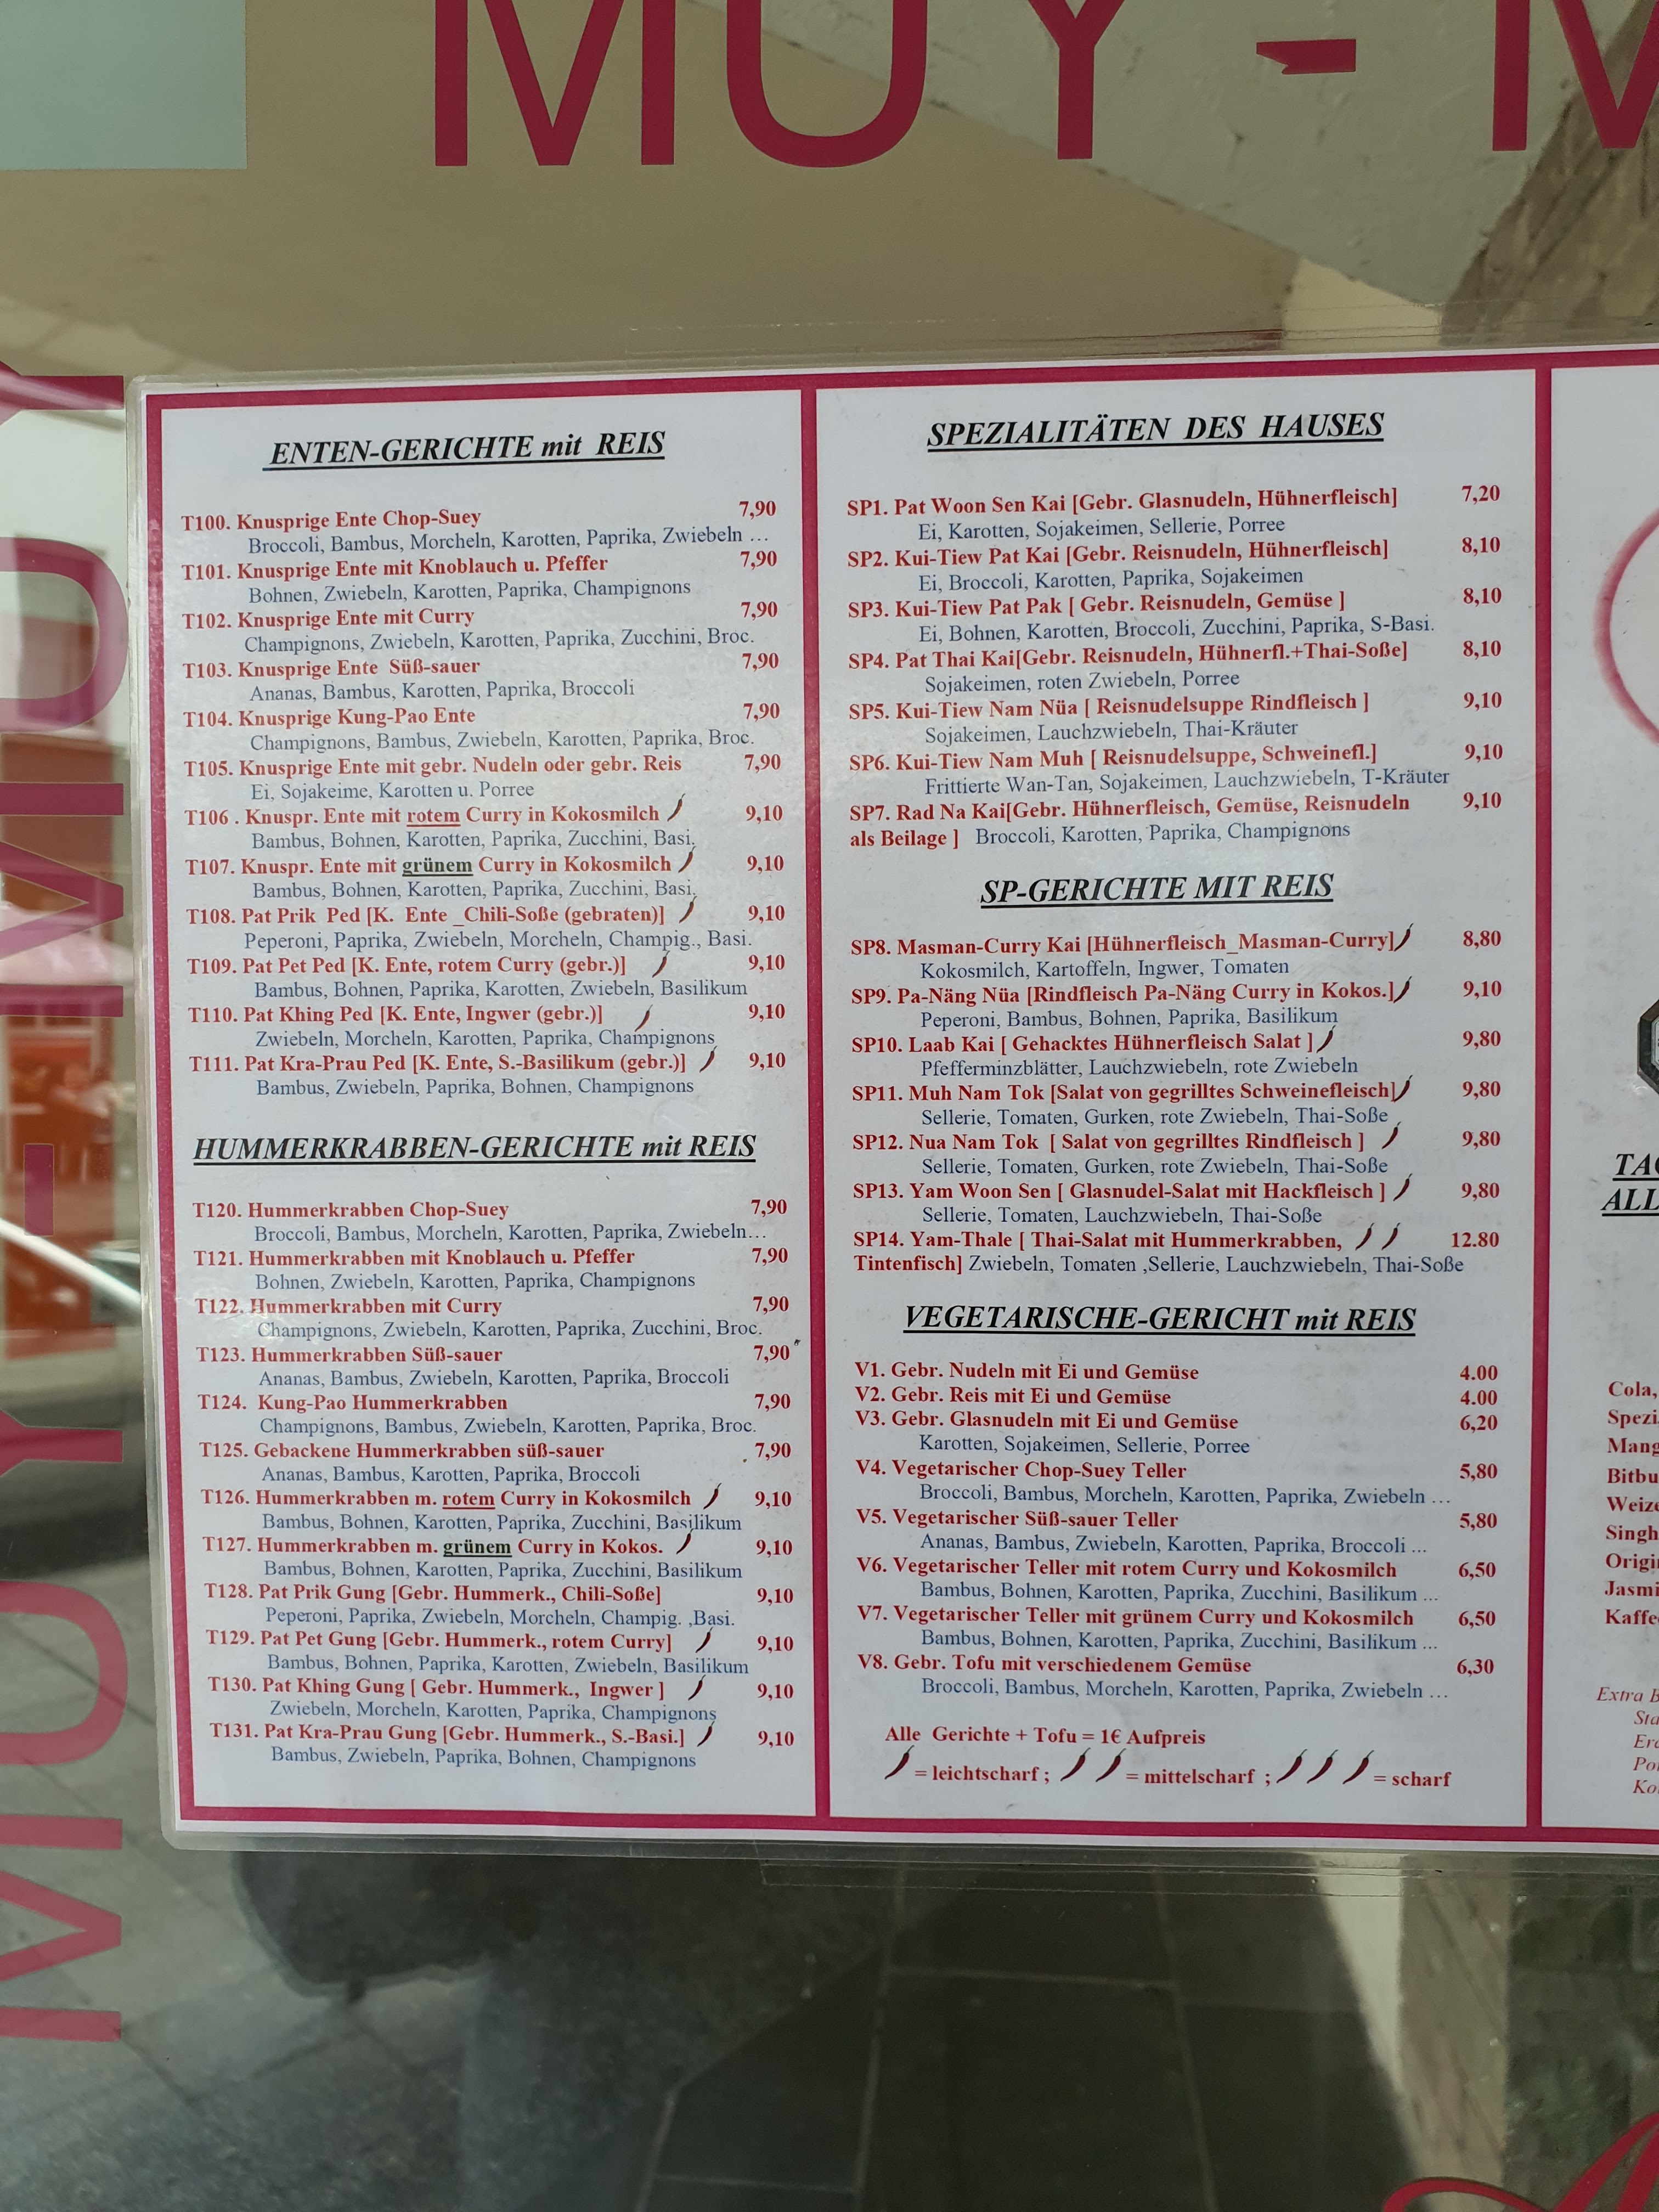 MUY - M
MUY - MUY
ENTEN-GERICHTE mit REIS
T100. Knusprige Ente Chop-Suey 7,90
Broccoli, Bambus, Morcheln, Karotten, Paprika, Zwiebeln ...
T101. Knusprige Ente mit Knoblauch u. Pfeffer 7,90
Bohnen, Zwiebeln, Karotten, Paprika, Champignons
T102. Knusprige Ente mit Curry 7,90
Champignons, Zwiebeln, Karotten, Paprika, Zucchini, Broc.
T103. Knusprige Ente Süß-sauer 7,90
Ananas, Bambus, Karotten, Paprika, Broccoli
T104. Knusprige Kung-Pao Ente 7,90
Champignons, Bambus, Zwiebeln, Karotten, Paprika, Broc.
T105. Knusprige Ente mit gebr. Nudeln oder gebr. Reis 7,90
Ei, Sojakeime, Karotten u. Porree
T106 . Knuspr. Ente mit rotem Curry in Kokosmilch 9,10
Bambus, Bohnen, Karotten, Paprika, Zucchini, Basi.
T107. Knuspr. Ente mit grünem Curry in Kokosmilch 9,10
Bambus, Bohnen, Karotten, Paprika, Zucchini, Basi.
T108. Pat Prik Ped [K. Ente _Chili-Soße (gebraten)] 9,10
Peperoni, Paprika, Zwiebeln, Morcheln, Champig., Basi.
T109. Pat Pet Ped [K. Ente, rotem Curry (gebr.)] 9,10
Bambus, Bohnen, Paprika, Karotten, Zwiebeln, Basilikum
T110. Pat Khing Ped [K. Ente, Ingwer (gebr.)] 9,10
Zwiebeln, Morcheln, Karotten, Paprika, Champignons
T111. Pat Kra-Prau Ped [K. Ente, S.-Basilikum (gebr.)] 9,10
Bambus, Zwiebeln, Paprika, Bohnen, Champignons
HUMMERKRABBEN-GERICHTE mit REIS
T120. Hummerkrabben Chop-Suey 7,90
Broccoli, Bambus, Morcheln, Karotten, Paprika, Zwiebeln...
T121. Hummerkrabben mit Knoblauch u. Pfeffer 7,90
Bohnen, Zwiebeln, Karotten, Paprika, Champignons
T122. Hummerkrabben mit Curry 7,90
Champignons, Zwiebeln, Karotten, Paprika, Zucchini, Broc.
T123. Hummerkrabben Süß-sauer 7,90
Ananas, Bambus, Zwiebeln, Karotten, Paprika, Broccoli
T124. Kung-Pao Hummerkrabben 7,90
Champignons, Bambus, Zwiebeln, Karotten, Paprika, Broc.
T125. Gebackene Hummerkrabben süß-sauer 7,90
Ananas, Bambus, Karotten, Paprika, Broccoli
T126. Hummerkrabben m. rotem Curry in Kokosmilch 9,10
Bambus, Bohnen, Karotten, Paprika, Zucchini, Basilikum
T127. Hummerkrabben m. grünem Curry in Kokos. 9,10
Bambus, Bohnen, Karotten, Paprika, Zucchini, Basilikum
T128. Pat Prik Gung [Gebr. Hummerk., Chili-Soße] 9,10
Peperoni, Paprika, Zwiebeln, Morcheln, Champig. ,Basi.
T129. Pat Pet Gung [Gebr. Hummerk., rotem Curry] 9,10
Bambus, Bohnen, Paprika, Karotten, Zwiebeln, Basilikum
T130. Pat Khing Gung [ Gebr. Hummerk., Ingwer ] 9,10
Zwiebeln, Morcheln, Karotten, Paprika, Champignons
T131. Pat Kra-Prau Gung [Gebr. Hummerk., S.-Basi.] 9,10
Bambus, Zwiebeln, Paprika, Bohnen, Champignons
SPEZIALITÄTEN DES HAUSES
SP1. Pat Woon Sen Kai [Gebr. Glasnudeln, Hühnerfleisch] 7,20
Ei, Karotten, Sojakeimen, Sellerie, Porree
SP2. Kui-Tiew Pat Kai [Gebr. Reisnudeln, Hühnerfleisch] 8,10
Ei, Broccoli, Karotten, Paprika, Sojakeimen
SP3. Kui-Tiew Pat Pak [ Gebr. Reisnudeln, Gemüse ] 8,10
Ei, Bohnen, Karotten, Broccoli, Zucchini, Paprika, S-Basi.
SP4. Pat Thai Kai[Gebr. Reisnudeln, Hühnerfl.+Thai-Soße] 8,10
Sojakeimen, roten Zwiebeln, Porree
SP5. Kui-Tiew Nam Nüa [ Reisnudelsuppe Rindfleisch ] 9,10
Sojakeimen, Lauchzwiebeln, Thai-Kräuter
SP6. Kui-Tiew Nam Muh [ Reisnudelsuppe, Schweinefl.] 9,10
Frittierte Wan-Tan, Sojakeimen, Lauchzwiebeln, T-Kräuter
SP7. Rad Na Kai[Gebr. Hühnerfleisch, Gemüse, Reisnudeln 9,10
als Beilage ] Broccoli, Karotten, Paprika, Champignons
SP-GERICHTE MIT REIS
SP8. Masman-Curry Kai [Hühnerfleisch_Masman-Curry] 8,80
Kokosmilch, Kartoffeln, Ingwer, Tomaten
SP9. Pa-Näng Nüa [Rindfleisch Pa-Näng Curry in Kokos.] 9,10
Peperoni, Bambus, Bohnen, Paprika, Basilikum
SP10. Laab Kai [ Gehacktes Hühnerfleisch Salat ] 9,80
Pfefferminzblätter, Lauchzwiebeln, rote Zwiebeln
SP11. Muh Nam Tok [Salat von gegrilltes Schweinefleisch] 9,80
Sellerie, Tomaten, Gurken, rote Zwiebeln, Thai-Soße
SP12. Nua Nam Tok [ Salat von gegrilltes Rindfleisch ] 9,80
Sellerie, Tomaten, Gurken, rote Zwiebeln, Thai-Soße
SP13. Yam Woon Sen [ Glasnudel-Salat mit Hackfleisch ] 9,80
Sellerie, Tomaten, Lauchzwiebeln, Thai-Soße
SP14. Yam-Thale [ Thai-Salat mit Hummerkrabben, 12.80
Tintenfisch] Zwiebeln, Tomaten ,Sellerie, Lauchzwiebeln, Thai-Soße
VEGETARISCHE-GERICHT mit REIS
V1. Gebr. Nudeln mit Ei und Gemüse 4.00
V2. Gebr. Reis mit Ei und Gemüse 4.00
V3. Gebr. Glasnudeln mit Ei und Gemüse 6,20
Karotten, Sojakeimen, Sellerie, Porree
V4. Vegetarischer Chop-Suey Teller 5,80
Broccoli, Bambus, Morcheln, Karotten, Paprika, Zwiebeln ...
V5. Vegetarischer Süß-sauer Teller 5,80
Ananas, Bambus, Zwiebeln, Karotten, Paprika, Broccoli ...
V6. Vegetarischer Teller mit rotem Curry und Kokosmilch 6,50
Bambus, Bohnen, Karotten, Paprika, Zucchini, Basilikum ...
V7. Vegetarischer Teller mit grünem Curry und Kokosmilch 6,50
Bambus, Bohnen, Karotten, Paprika, Zucchini, Basilikum ...
V8. Gebr. Tofu mit verschiedenem Gemüse 6,30
Broccoli, Bambus, Morcheln, Karotten, Paprika, Zwiebeln ...
Alle Gerichte + Tofu = 1€ Aufpreis
= leichtscharf ; = mittelscharf ; = scharf
TA
ALL
Cola,
Spezi
Mang
Bitbu
Weize
Singh
Origi
Jasmi
Kaffe
Extra B
Sta
Er
Po
Ko